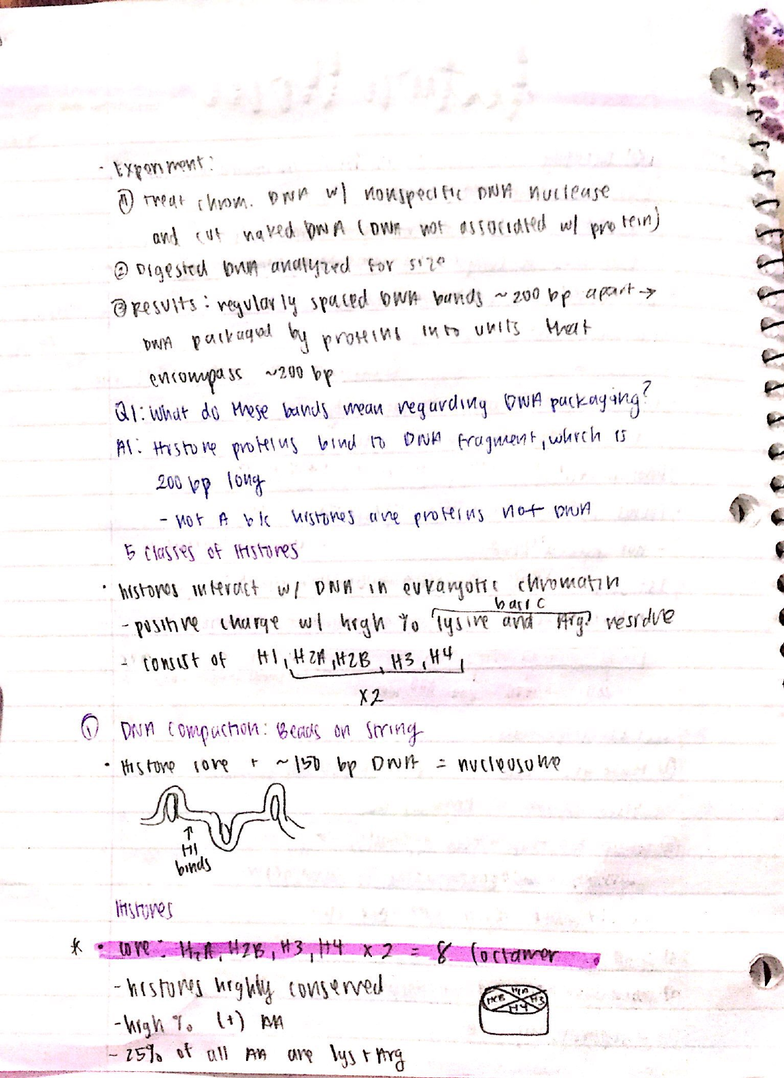 · Experiment:
① Treat chrom. DNA w/ nonspecific DNA nuclease
and cut naked DNA (DNA not associated w/ protein)
② Digested DNA analyzed for size
③ Results: regularly spaced DNA bands ~200 bp apart →
DNA packaged by proteins into units that
encompass ~200 bp
Q1: What do these bands mean regarding DNA packaging?
A1: Histone proteins bind to DNA fragment, which is
200 bp long
- not A b/c histones are proteins not DNA
5 Classes of Histones
· histones interact w/ DNA in eukaryotic chromatin
basic
- positive charge w/ high % lysine and Arg. residue
- consist of H1, H2A, H2B, H3, H4,
x2
① DNA Compaction: Beads on String
· Histone core + ~150 bp DNA = nucleosome
↑
H1
binds
Histones
* · core: H2A, H2B, H3, H4 x 2 = 8 (octamer
- histones highly conserved
H2A
H2B H3
H4
- high % (+) AA
- 25% of all AA are lys + Arg